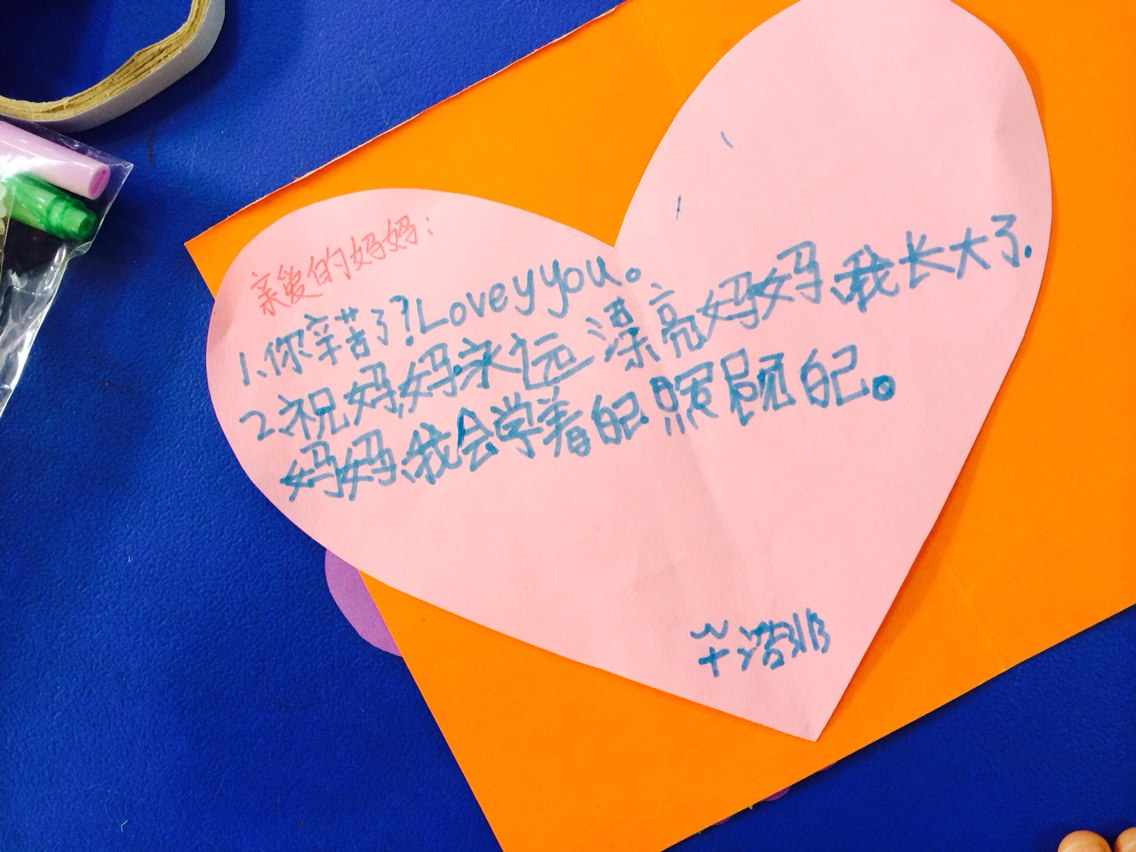 亲爱的妈妈:
1、你辛苦了?Loveyyou。
2、祝妈妈永远漂亮妈妈、我长大了.
妈妈、我会学着自己照顾自己。
诺